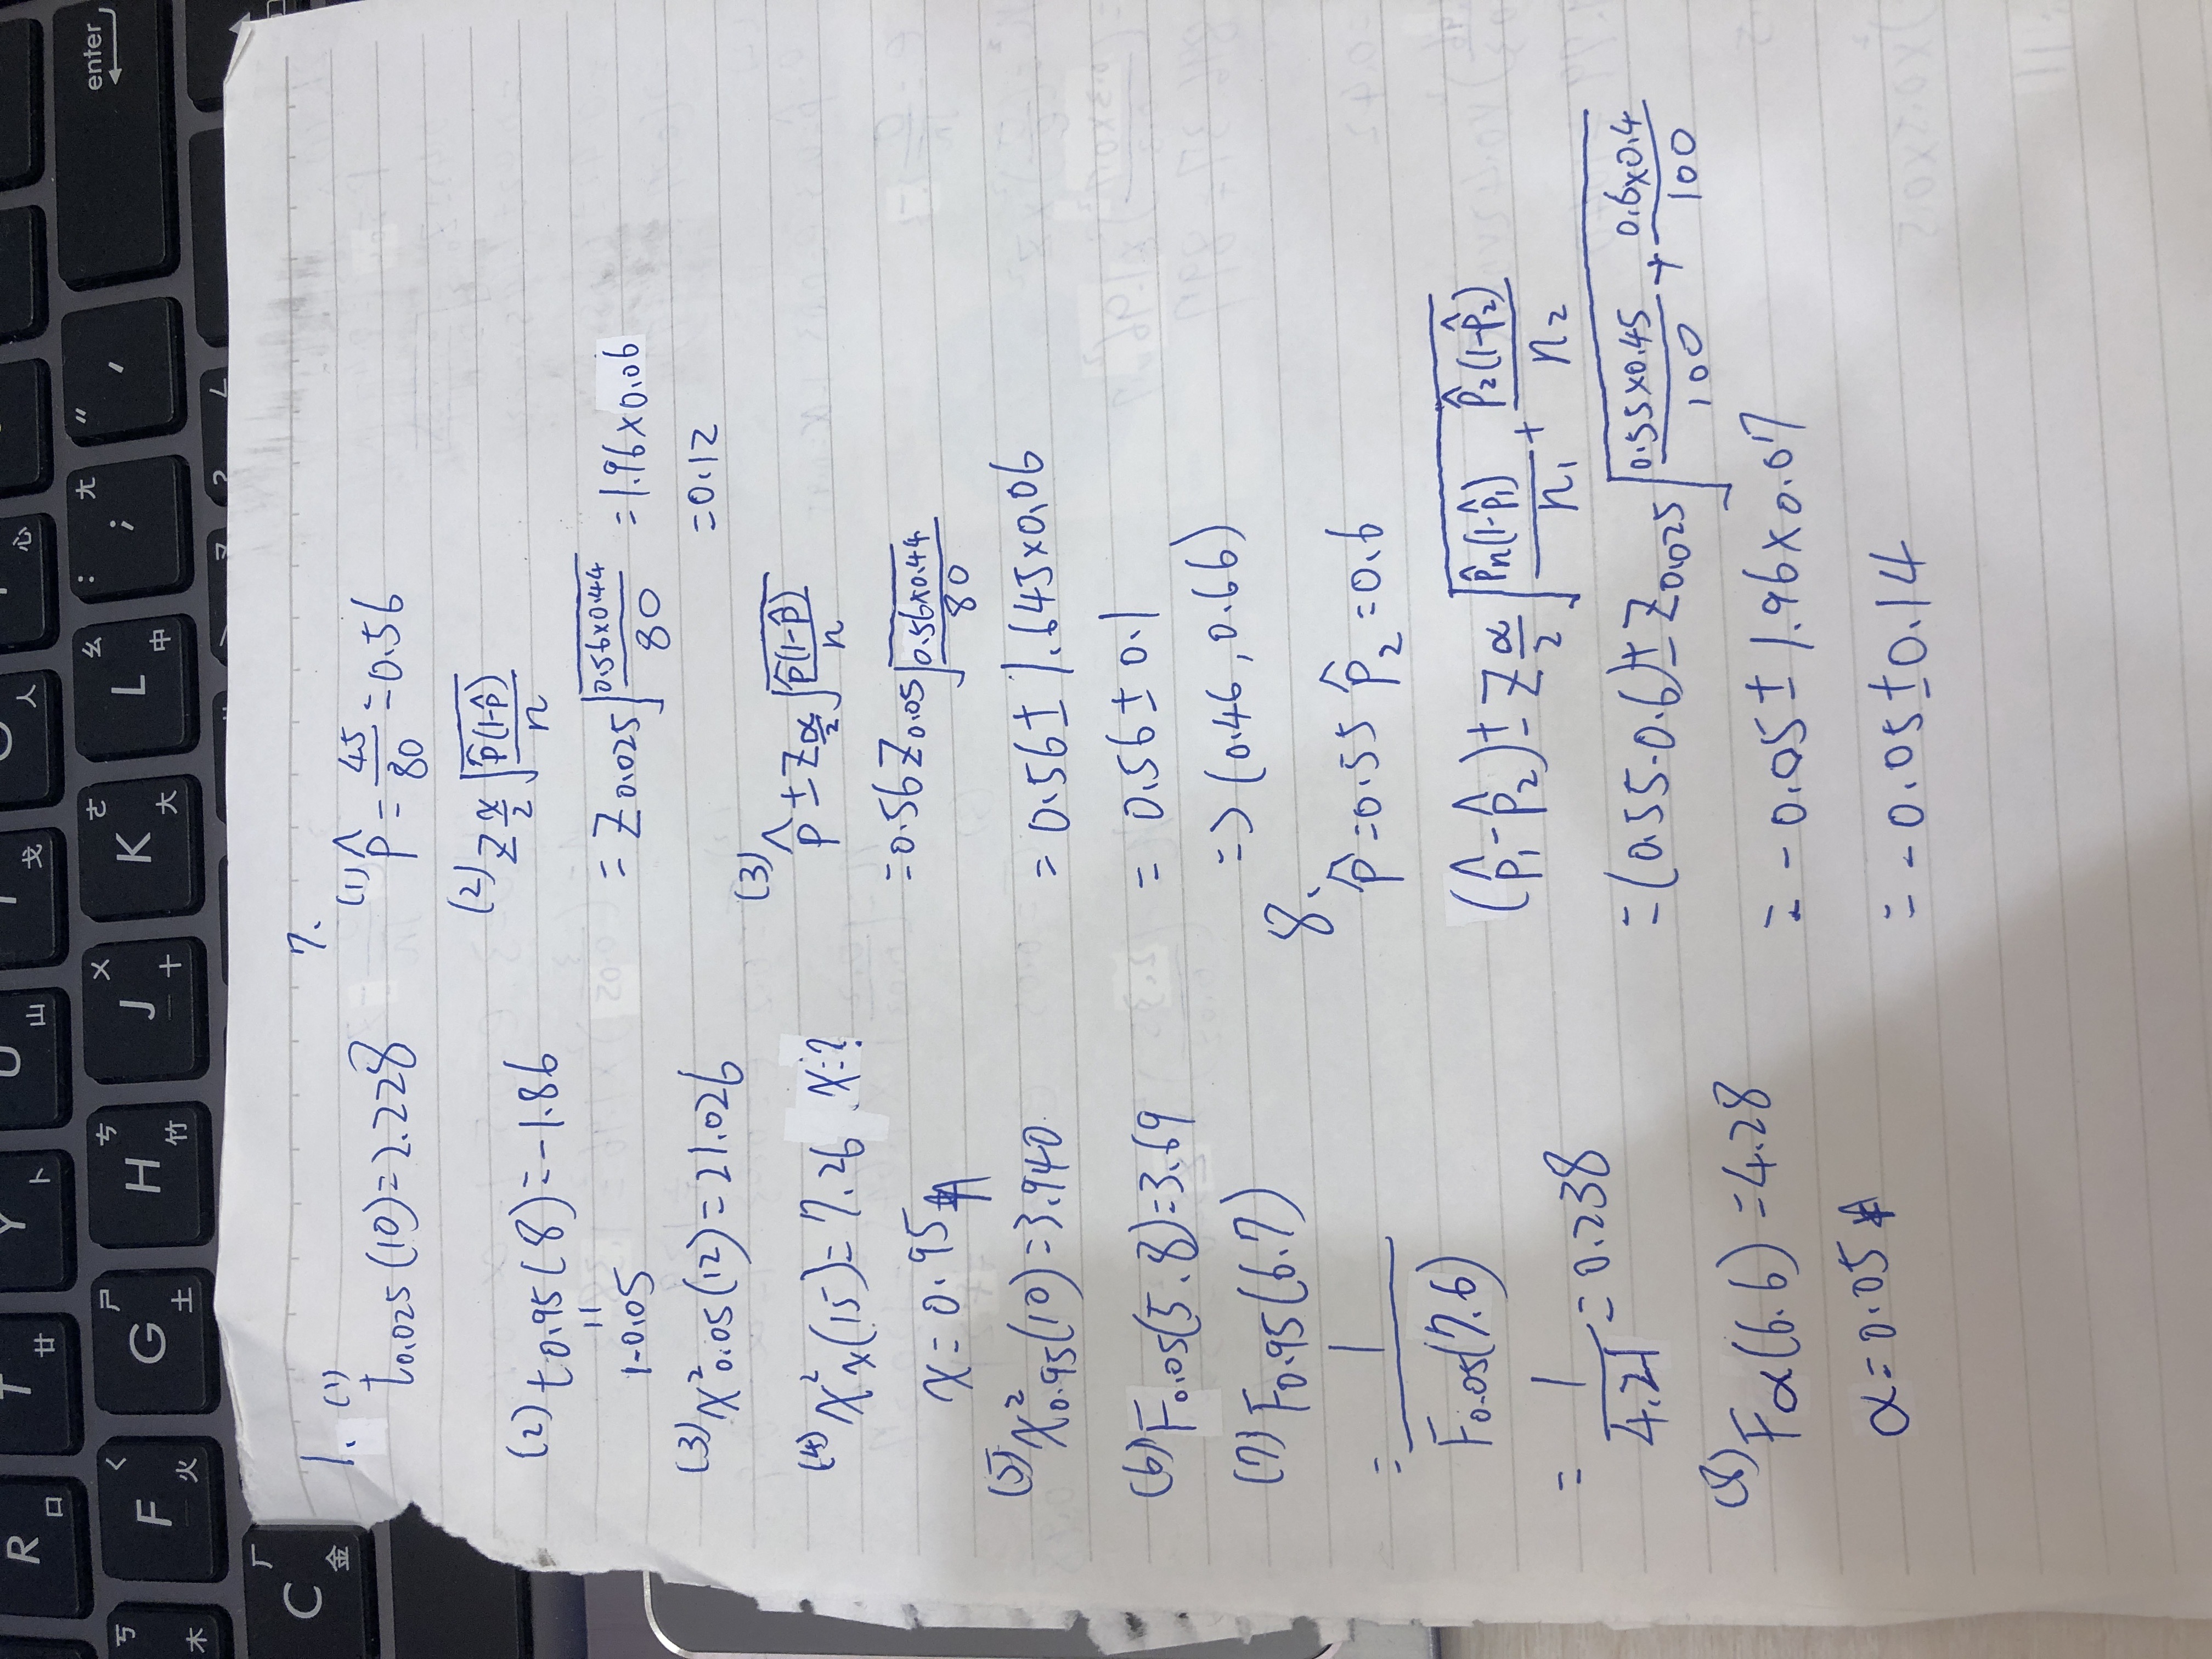 R 口
T 廿
Y 卜
U 山
I 戈
O 人
P 心
ㄎ 木
F ㄑ 火
G ㄕ 土
H ㄘ 竹
J ㄨ 十
K ㄜ 大
L ㄠ 中
: ; ㄤ
" '
enter
C ㄏ 金
1.
(1)
t0.025(10)=2.228
(2) t0.95(8)=-1.86
11
1-0.05
(3) χ²0.05(12)=21.026
(4) χ²x(15)=7.26 x=?
x=0.95
(5) χ²0.95(10)=3.940
(6) F0.05(5.8)=3.69
(7) F0.95(6.7)
= 1/F0.05(7.6)
= 1/4.21=0.238
(8) Fα(6.6)=4.28
α=0.05
7.
(1) p̂=45/80=0.56
(2) Z α/2 √(p̂(1-p̂)/n)
= Z0.025 √(0.56×0.44/80) =1.96×0.06
=0.12
(3) p̂ ± Z α/2 √(p̂(1-p̂)/n)
=0.56 Z0.05 √(0.56×0.44/80)
= 0.56 ± 1.645×0.06
= 0.56 ± 0.1
=> (0.46, 0.66)
8.
p̂=0.55 p̂2=0.6
(p̂1-p̂2) ± Z α/2 √(p̂n(1-p̂1)/n1 + p̂2(1-p̂2)/n2)
=(0.55-0.6) ± Z0.025 √(0.55×0.45/100 + 0.6×0.4/100)
= -0.05 ± 1.96×0.07
= -0.05 ± 0.14